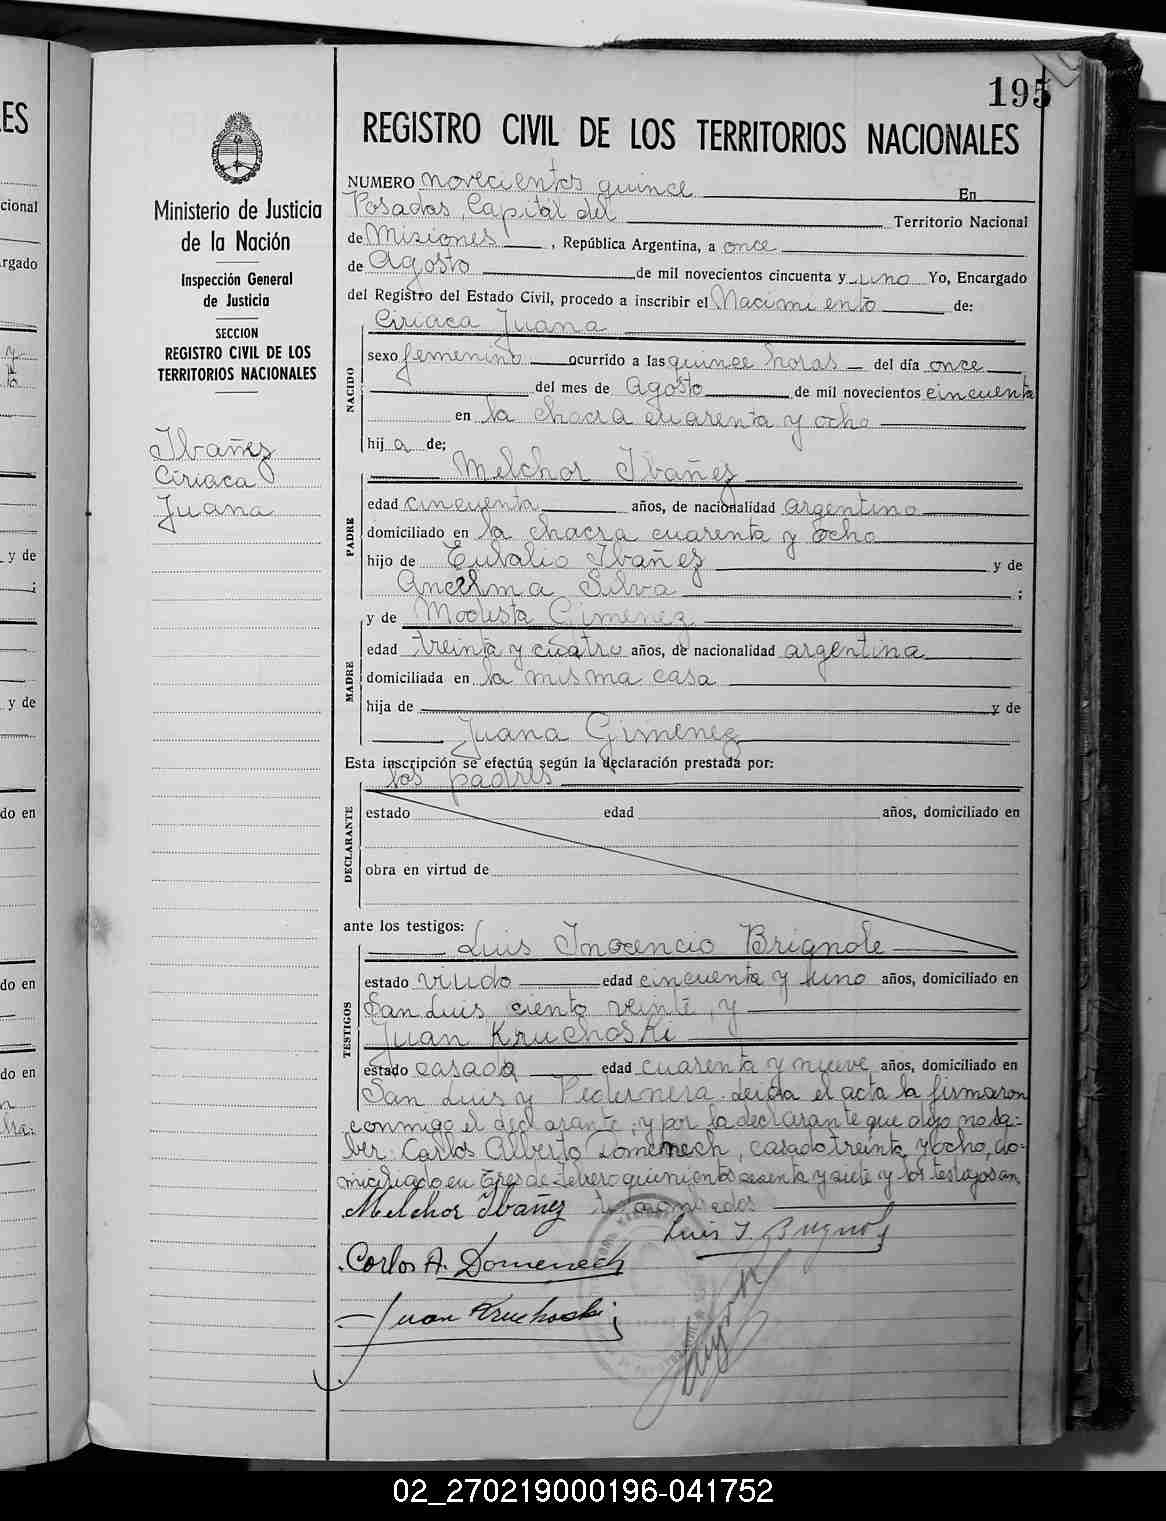 195
REGISTRO CIVIL DE LOS TERRITORIOS NACIONALES
Ministerio de Justicia
de la Nación
Inspección General
de Justicia
SECCION
REGISTRO CIVIL DE LOS
TERRITORIOS NACIONALES
Ibañez
Ciriaca
Juana
NUMERO novecientos quince En
Posadas, Capital del Territorio Nacional
de Misiones, República Argentina, a once
de Agosto de mil novecientos cincuenta y uno Yo, Encargado
del Registro del Estado Civil, procedo a inscribir el Nacimiento de:
Ciriaca Juana
NACIDO
sexo femenino ocurrido a las quince horas del día once
del mes de Agosto de mil novecientos cincuenta
en la chacra cuarenta y ocho
hij a de;
Melchor Ibañez
PADRE
edad cincuenta años, de nacionalidad argentino
domiciliado en la chacra cuarenta y ocho
hijo de Eubalio Ibañez y de
Ancelma Silva ;
y de Modesta Gimenez
MADRE
edad treinta y cuatro años, de nacionalidad argentina
domiciliada en la misma casa
hija de y de
Juana Gimenez
Esta inscripción se efectúa según la declaración prestada por:
los padres
DECLARANTE
estado edad años, domiciliado en
obra en virtud de
ante los testigos:
Luis Inocencio Brignole
TESTIGOS
estado viudo edad cincuenta y uno años, domiciliado en
San Luis ciento veinte, y
Juan Kruchoski
estado casado edad cuarenta y nueve años, domiciliado en
San Luis y Pedernera. Leida el acta la firmaron
conmigo el declarante, y por la declarante que dijo no sa-
ber: Carlos Alberto Domenech, casado treinta y ocho, do-
miciliado en Tres de Febrero quinientos sesenta y siete y los testigos an
te nombrados
Melchor Ibañez
Luis I. Brignole
Carlos A. Domenech
Juan Kruchoski
02_270219000196-041752